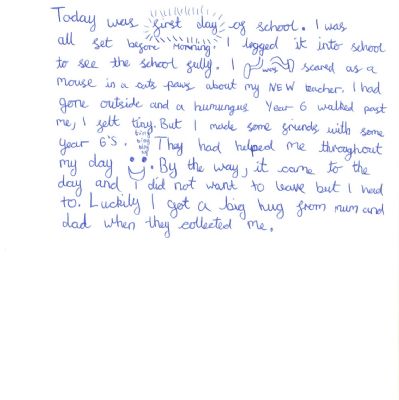 Today was first day of school. I was
all set before morning I legged it into school
to see the school fully. I was scared as a
mouse in a cats paws about my NEW teacher. I had
gone outside and a humungus Year 6 walked past
me, I felt tiny. But I made some friends with some
year 6'S. They had helped me throughout
my day. By the way, it came to the
day and i did not want to leave but I had
to. Luckily I got a big hug from mum and
dad when they collected me.